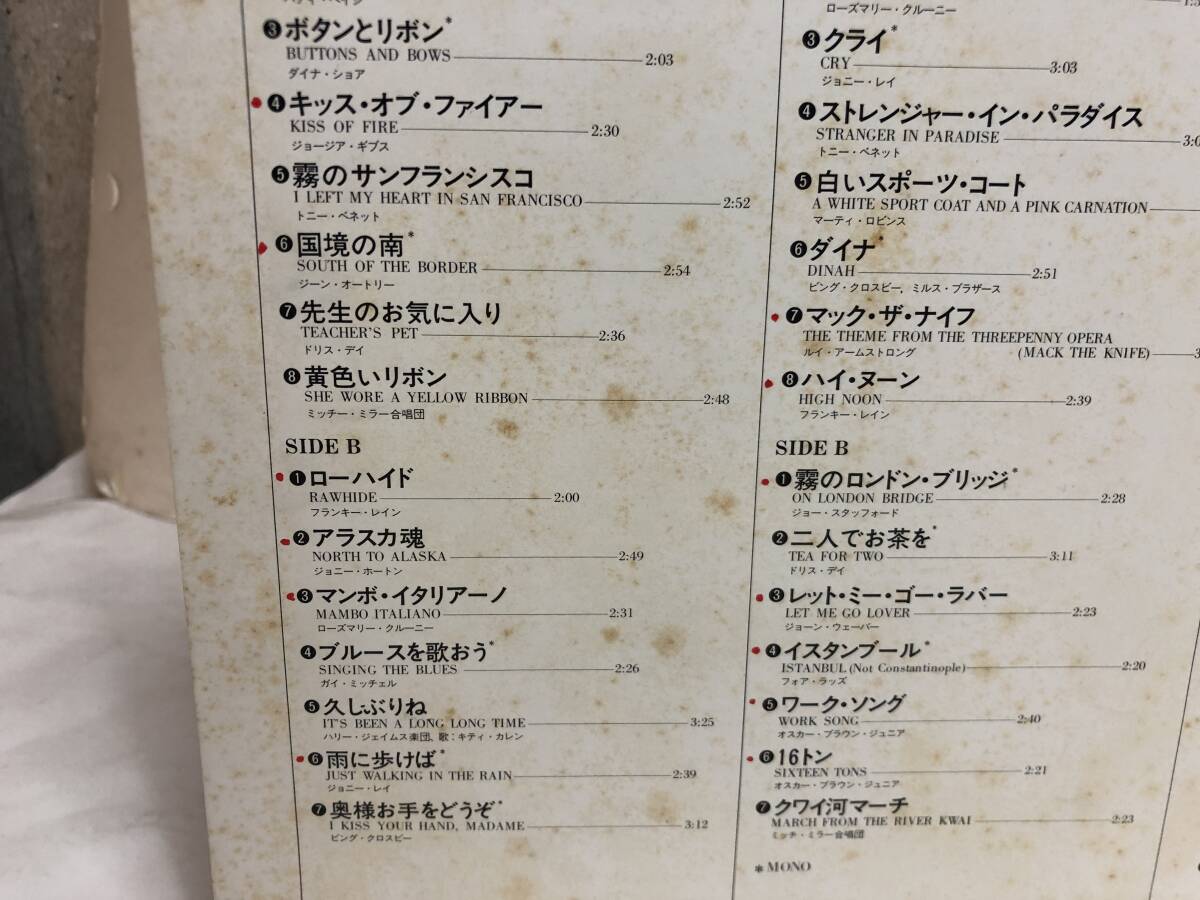 ❸ボタンとリボン*
BUTTONS AND BOWS 2:03
ダイナ・ショア
❹キッス・オブ・ファイアー
KISS OF FIRE 2:30
ジョージア・ギブス
❺霧のサンフランシスコ
I LEFT MY HEART IN SAN FRANCISCO 2:52
トニー・ベネット
❻国境の南*
SOUTH OF THE BORDER 2:54
ジーン・オートリー
❼先生のお気に入り
TEACHER'S PET 2:36
ドリス・デイ
❽黄色いリボン
SHE WORE A YELLOW RIBBON 2:48
ミッチー・ミラー合唱団
SIDE B
❶ローハイド
RAWHIDE 2:00
フランキー・レイン
❷アラスカ魂
NORTH TO ALASKA 2:49
ジョニー・ホートン
❸マンボ・イタリアーノ
MAMBO ITALIANO 2:31
ローズマリー・クルーニー
❹ブルースを歌おう*
SINGING THE BLUES 2:26
ガイ・ミッチェル
❺久しぶりね
IT'S BEEN A LONG LONG TIME 3:25
ハリー・ジェイムス楽団、歌:キティ・カレン
❻雨に歩けば*
JUST WALKING IN THE RAIN 2:39
ジョニー・レイ
❼奥様お手をどうぞ*
I KISS YOUR HAND, MADAME 3:12
ビング・クロスビー
ローズマリー・クルーニー
❸クライ*
CRY 3:03
ジョニー・レイ
❹ストレンジャー・イン・パラダイス
STRANGER IN PARADISE
トニー・ベネット
❺白いスポーツ・コート
A WHITE SPORT COAT AND A PINK CARNATION
マーティ・ロビンス
❻ダイナ*
DINAH 2:51
ビング・クロスビー, ミルス・ブラザース
❼マック・ザ・ナイフ
THE THEME FROM THE THREEPENNY OPERA
ルイ・アームストロング (MACK THE KNIFE)
❽ハイ・ヌーン
HIGH NOON 2:39
フランキー・レイン
SIDE B
❶霧のロンドン・ブリッジ*
ON LONDON BRIDGE 2:28
ジョー・スタッフォード
❷二人でお茶を*
TEA FOR TWO 3:11
ドリス・デイ
❸レット・ミー・ゴー・ラバー
LET ME GO LOVER 2:23
ジョーン・ウェーバー
❹イスタンブール*
ISTANBUL (Not Constantinople) 2:20
フォア・ラッズ
❺ワーク・ソング
WORK SONG 2:40
オスカー・ブラウン・ジュニア
❻16トン
SIXTEEN TONS 2:21
オスカー・ブラウン・ジュニア
❼クワイ河マーチ
MARCH FROM THE RIVER KWAI 2:23
ミッチ・ミラー合唱団
*MONO